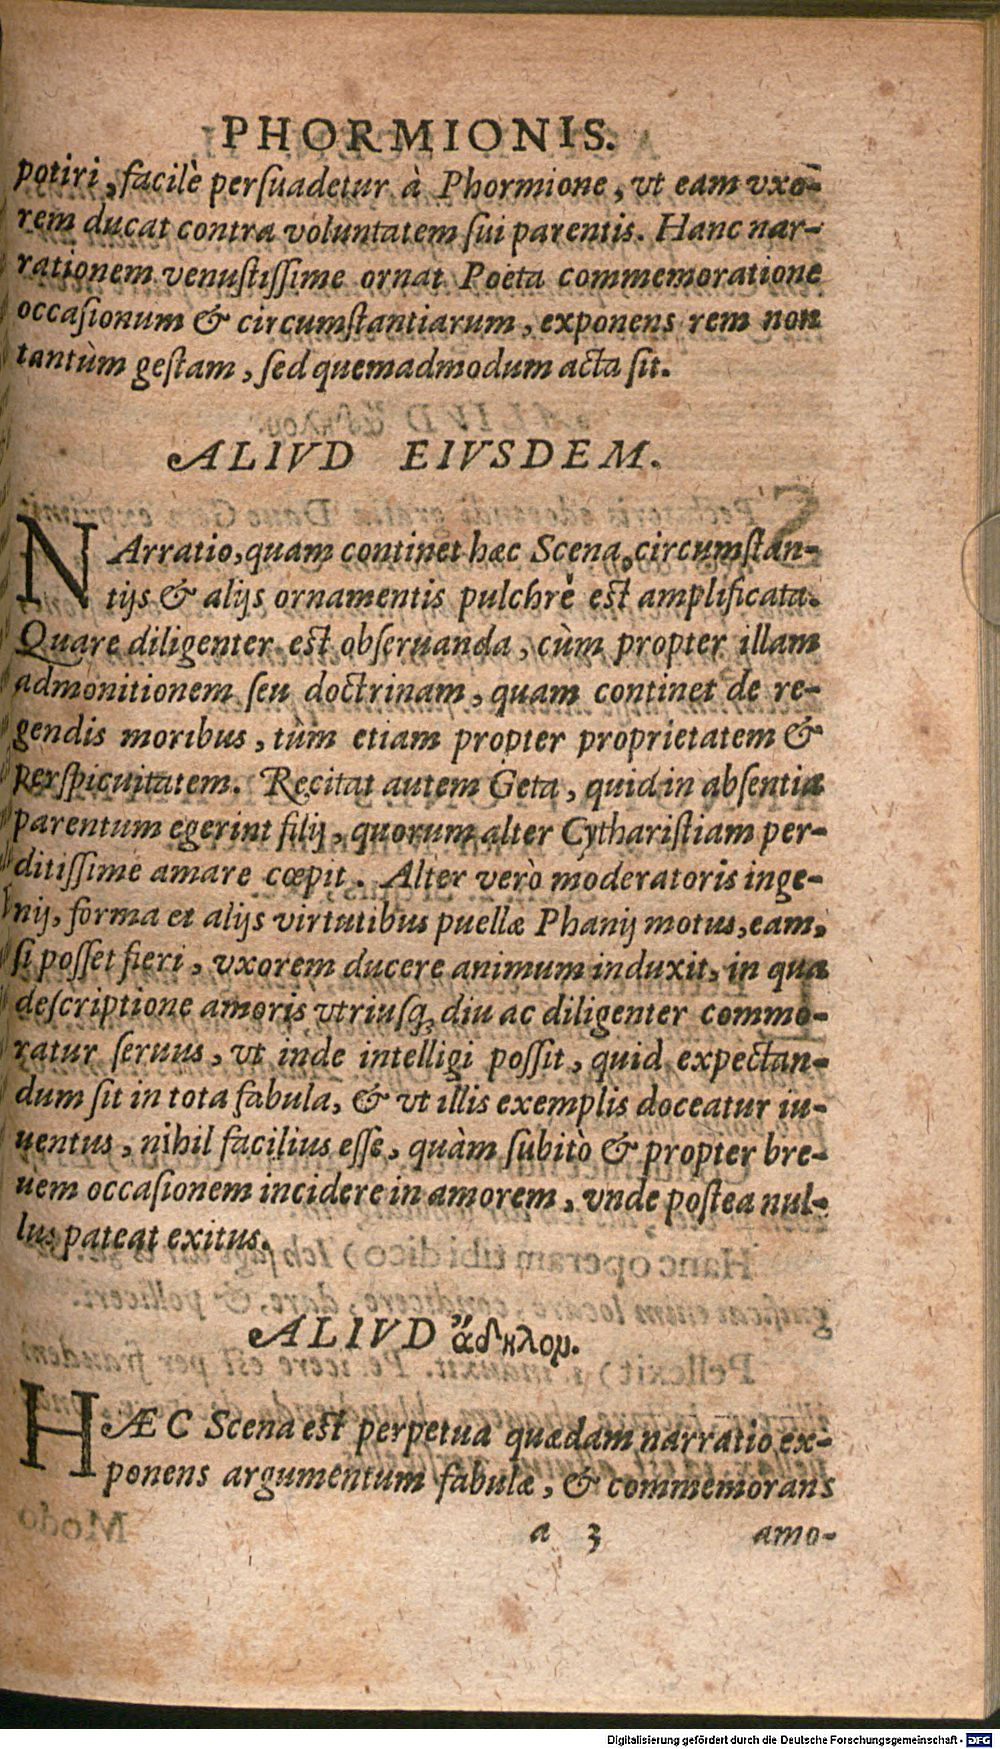 PHORMIONIS.
potiri, facilè persuadetur à Phormione, vt eam vxo-
rem ducat contra voluntatem sui parentis. Hanc nar-
rationem venustissime ornat Poëta commemoratione
occasionum & circumstantiarum, exponens rem non
tantùm gestam, sed quemadmodum acta sit.
ALIVD EIVSDEM.
NArratio, quam continet hæc Scena, circumstan-
tijs & alijs ornamentis pulchrè est amplificata.
Quare diligenter est obseruanda, cùm propter illam
admonitionem seu doctrinam, quam continet de re-
gendis moribus, tùm etiam propter proprietatem &
perspicuitatem. Recitat autem Geta, quid in absentia
parentum egerint filij, quorum alter Cytharistiam per-
ditissime amare cœpit. Alter verò moderatoris inge-
nij, forma et alijs virtutibus puellæ Phanij motus, eam,
si posset fieri, vxorem ducere animum induxit, in qua
descriptione amoris vtriusq; diu ac diligenter commo-
ratur seruus, vt inde intelligi possit, quid expectan-
dum sit in tota fabula, & vt illis exemplis doceatur iu-
uentus, nihil facilius esse, quàm subitò & propter bre-
uem occasionem incidere in amorem, vnde postea nul-
lus pateat exitus.
ALIVD ἄδηλου.
HÆC Scena est perpetua quædam narratio ex-
ponens argumentum fabulæ, & commemorans
a 3 amo-
Digitalisierung gefördert durch die Deutsche Forschungsgemeinschaft - DFG